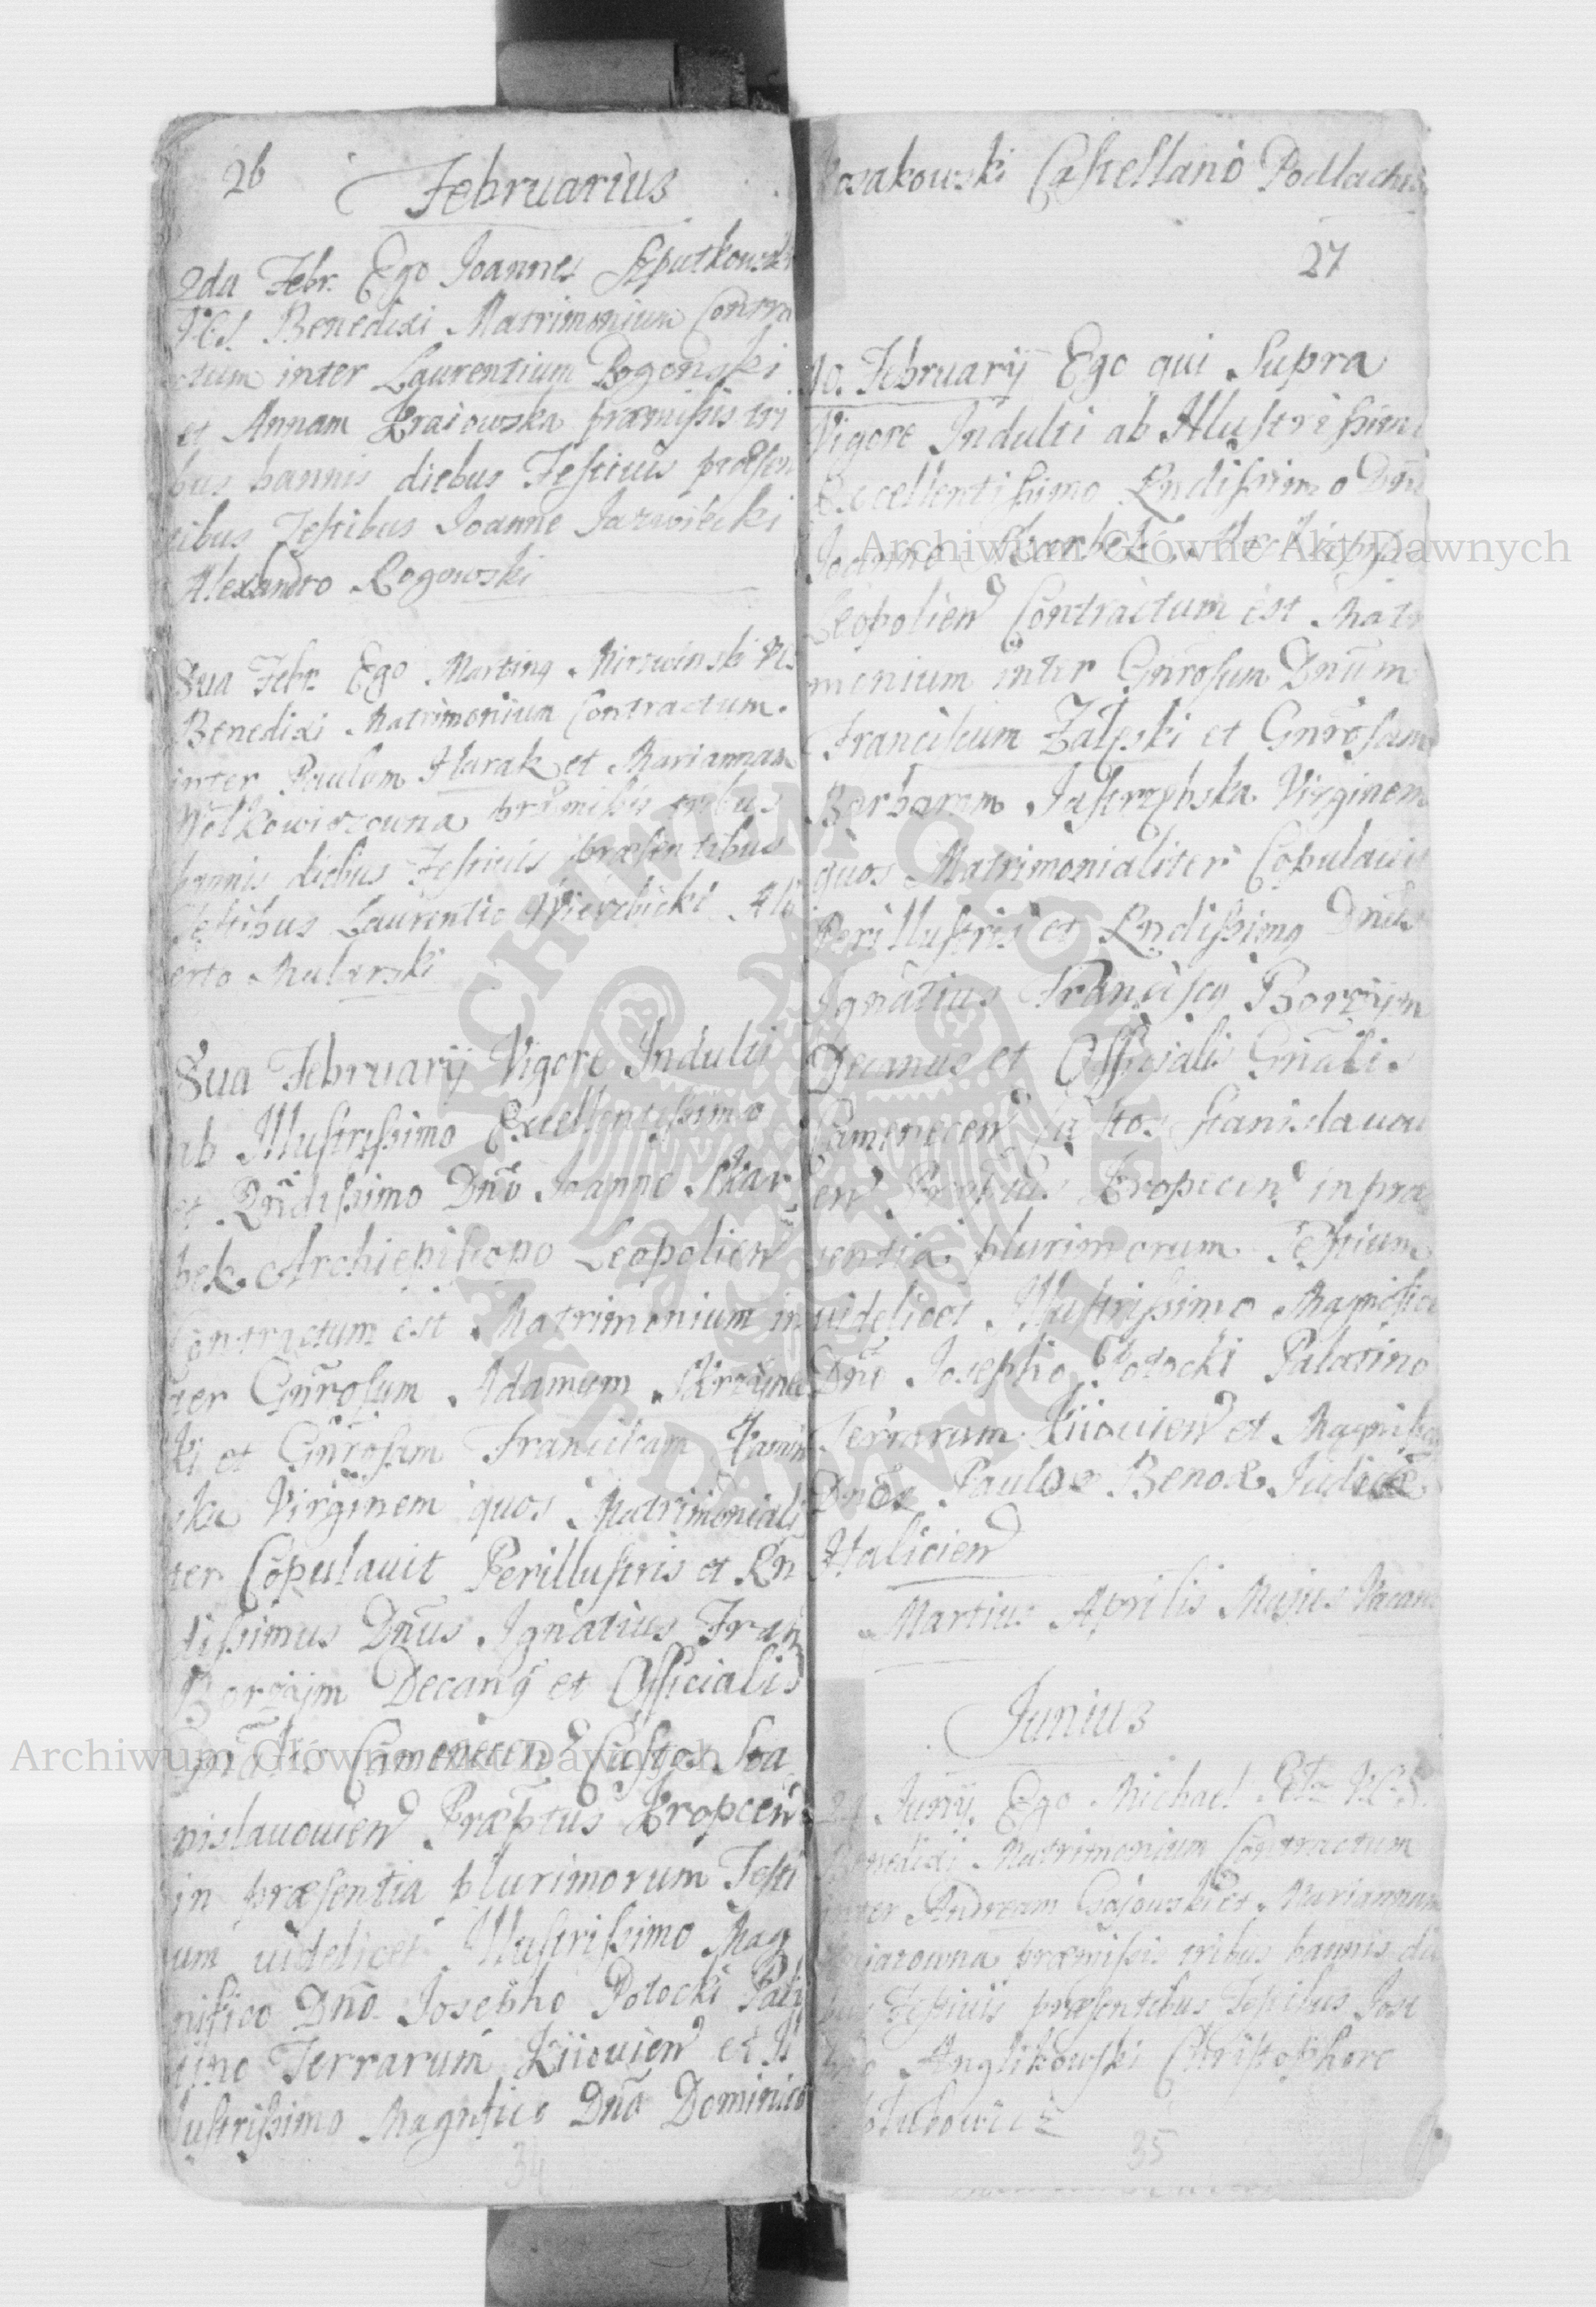 26
Februarius
2da Febr. Ego Joannes Szputkowski
V.C.S. Benedixi Matrimonium Contra
ctum inter Laurentium Rogonski
et Annam Kraiowska præmissis tri
bus bannis diebus Festivis præsen
tibus Testibus Joanne Jarwiecki
Alexandro Rogowski
8va Febr. Ego Martinq Mirzwinski VCS
Benedixi Matrimonium Contractum
inter Paulum Harak et Mariannam
Wolkowiczowna præmissis tribus
bannis diebus Festivis præsentibus
Testibus Laurentio Wierzbicki Alb
erto Mularski
8va Februarij Vigore Indulti
ab Illustrissimo Excellentissimo
et Rndissimo Dno Joanne Skar
bek Archiepiscopo Leopolien
Contractum est Matrimonium in
ter Gnrosum Adamum Skrzyne
ki et Gnrosam Franciscam Kamin
ska Virginem quos Matrimoniali
ter Copulavit Perillustris et Rn
dissimus Dnus Ignatius Fran
Borzajm Decanq et Officialis
Gnalis Camenecen Custos Sta
nislavovien Præptus Kropcen
in præsentia plurimorum Testi
um videlicet Illustrissimo Mag
nifico Dno Josepho Potocki Pala
tino Terrarum Kiiovien et Il
lustrissimo Magnfico Dno Dominico
34
Kosakowski Castellano Podlachiæ
27
10. Februarij Ego qui Supra
Vigore Indulti ab Illustrissimo
Excellentissimo Rndissimo Dno
Joanne Skarbek
Leopolien Contractum est Matri
monium inter Gnrosum Dnum
Franciscum Zaleski et Gnrosam
Barbaram Jastrzebska Virginem
quos Matrimonialiter Copulavit
Perillustris et Rndissimq Dnus
Ignatius Franciscq Borzajm
Decanus et Officialis Gnalis
Camenecen Custos Stanislavovi
en Præptus Kropcen in præ
sentia plurimorum Testium
videlicet Illustrissimo Magnifico
Dno Josepho Potocki Palatino
Terrarum Kiiovien et Magnifico
Dno Paulo Benoe Judice
Halicien
Martius Aprilis Majus Vacant
Junius
24 Junij Ego Michael V.C.S.
Benedixi Matrimonium Contractum
inter Andream Gajowski et Mariannam
præmissis tribus bannis die
bus Festivis præsentibus Testibus Jose
pho Anglikowski Christophoro
35
Archiwum Główne Akt Dawnych
Archiwum Główne Akt Dawnych
ARCHIWUM GŁÓWNE AKT DAWNYCH